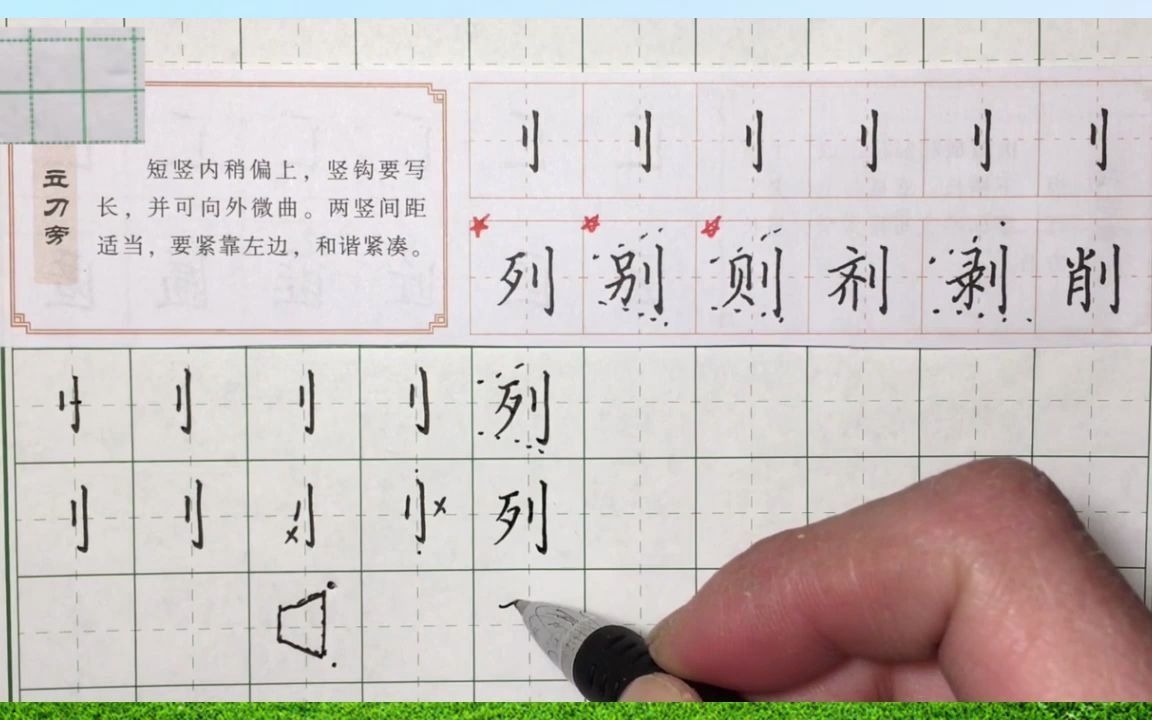 立刀旁
短竖内稍偏上，竖钩要写
长，并可向外微曲。两竖间距
适当，要紧靠左边，和谐紧凑。
刂 刂 刂 刂 刂 刂
列 别 则 剂 剥 削
刂 刂 刂 刂 列
刂 刂 刂 刂 列